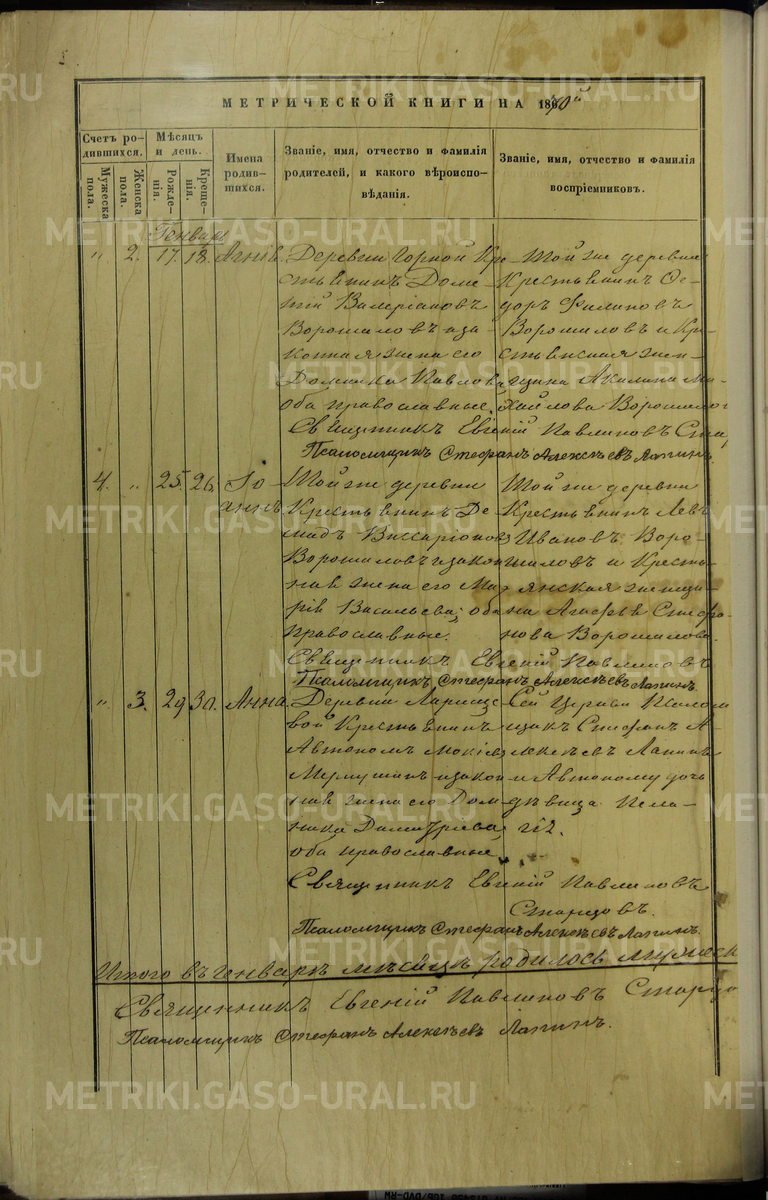 МЕТРИЧЕСКОЙ КНИГИ НА 1870й
Счетъ родившихся.
Мѣсяцъ и день.
Имена родившихся.
Званіе, имя, отчество и фамилія родителей, и какого вѣроисповѣданія.
Званіе, имя, отчество и фамилія воспріемниковъ.
Мужеска пола.
Женска пола.
Рожденія.
Крещенія.
Генварь
" 2. 17. 18.
Деревни Горной Кре-
стьянинъ Доме-
тій Валеріановъ
Ворошиловъ и за-
конная жена его
Домника Павлова
оба православные.
Той же деревни
Крестьянинъ Ѳе-
доръ Филиповъ
Ворошиловъ и Кре-
стьянская жен-
щина Акилина Ми-
хайлова Ворошилова
Священникъ Евгеній Павлиновъ Стар
Псаломщикъ Стефанъ Алексѣевъ Лапинъ
4. " 25. 26. Іо-
аннъ
Той же деревни
Крестьянинъ Де-
мидъ Виссаріоновъ
Ворошиловъ и закон-
ная жена его Ма-
рія Васильева; оба
православные.
Той же деревни
Крестьянинъ Левъ
Ивановъ Воро-
шиловъ и Кресть-
янская женщи-
на Агафья Стефа-
нова Ворошилова.
Священникъ Евгеній Павлиновъ
Псаломщикъ Стефанъ Алексѣевъ Лапинъ.
" 3. 29 30. Анна.
Деревни
вой Крестьянинъ
Автономъ Мокіевъ
и закон-
ная жена его Дом-
ника Димитріева,
оба православные
Сей Церкви Псалом
щикъ Стефанъ А-
лексѣевъ Лапинъ
и Автонома дочь
дѣвица Пела-
гія.
Священникъ Евгеній Павлиновъ
Старцовъ.
Псаломщикъ Стефанъ Алексѣевъ Лапинъ.
Итого въ генварѣ мѣсяцѣ родилось мужеск
Священникъ Евгеній Павлиновъ Старцо
Псаломщикъ Стефанъ Алексѣевъ Лапинъ.
METRIKI.GASO-URAL.RU